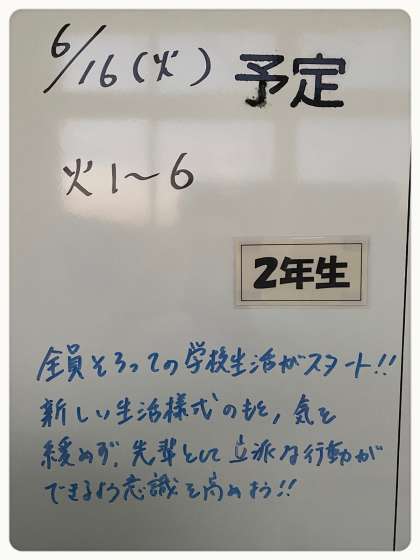 6/16(火) 予定
火1〜6
2年生
全員そろっての学校生活がスタート!!
新しい生活様式のもと,気を
緩めず,先輩として立派な行動が
できるよう意識を高めよう!!